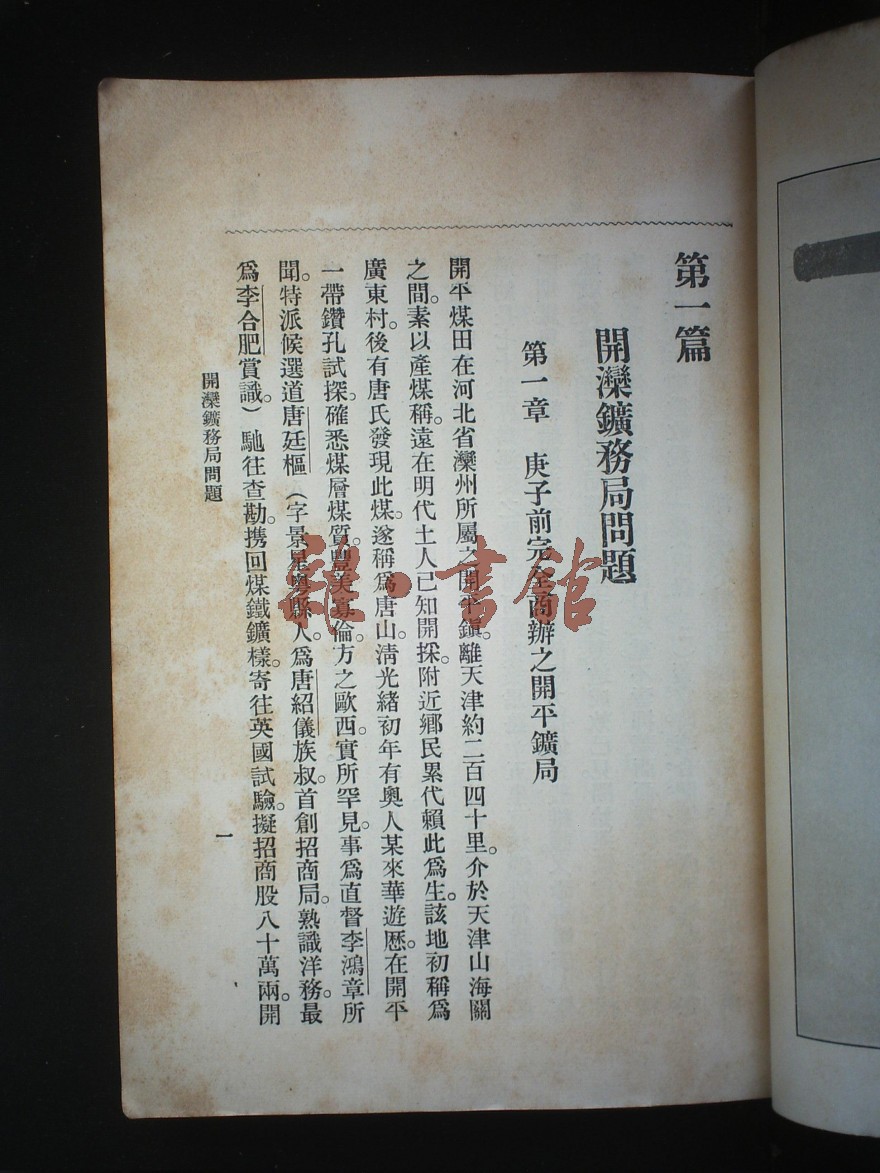 第一篇
開灤鑛務局問題
第一章　庚子前完全商辦之開平鑛局
開平煤田在河北省灤州所屬之開平鎭。離天津約二百四十里。介於天津山海關
之間。素以產煤稱。遠在明代土人已知開採。附近鄉民累代賴此爲生。該地初稱爲
廣東村。後有唐氏發現此煤。遂稱爲唐山。淸光緒初年有奧人某來華遊歷。在開平
一帶鑽孔試探。確悉煤層煤質。豐美寡倫。方之歐西。實所罕見。事爲直督李鴻章所
聞。特派候選道唐廷樞（字景星粵縣人。爲唐紹儀族叔。首創招商局。熟識洋務。最
爲李合肥賞識。）馳往查勘。携回煤鐵鑛樣。寄往英國試驗。擬招商股八十萬兩。開
開灤鑛務局問題
一
書館